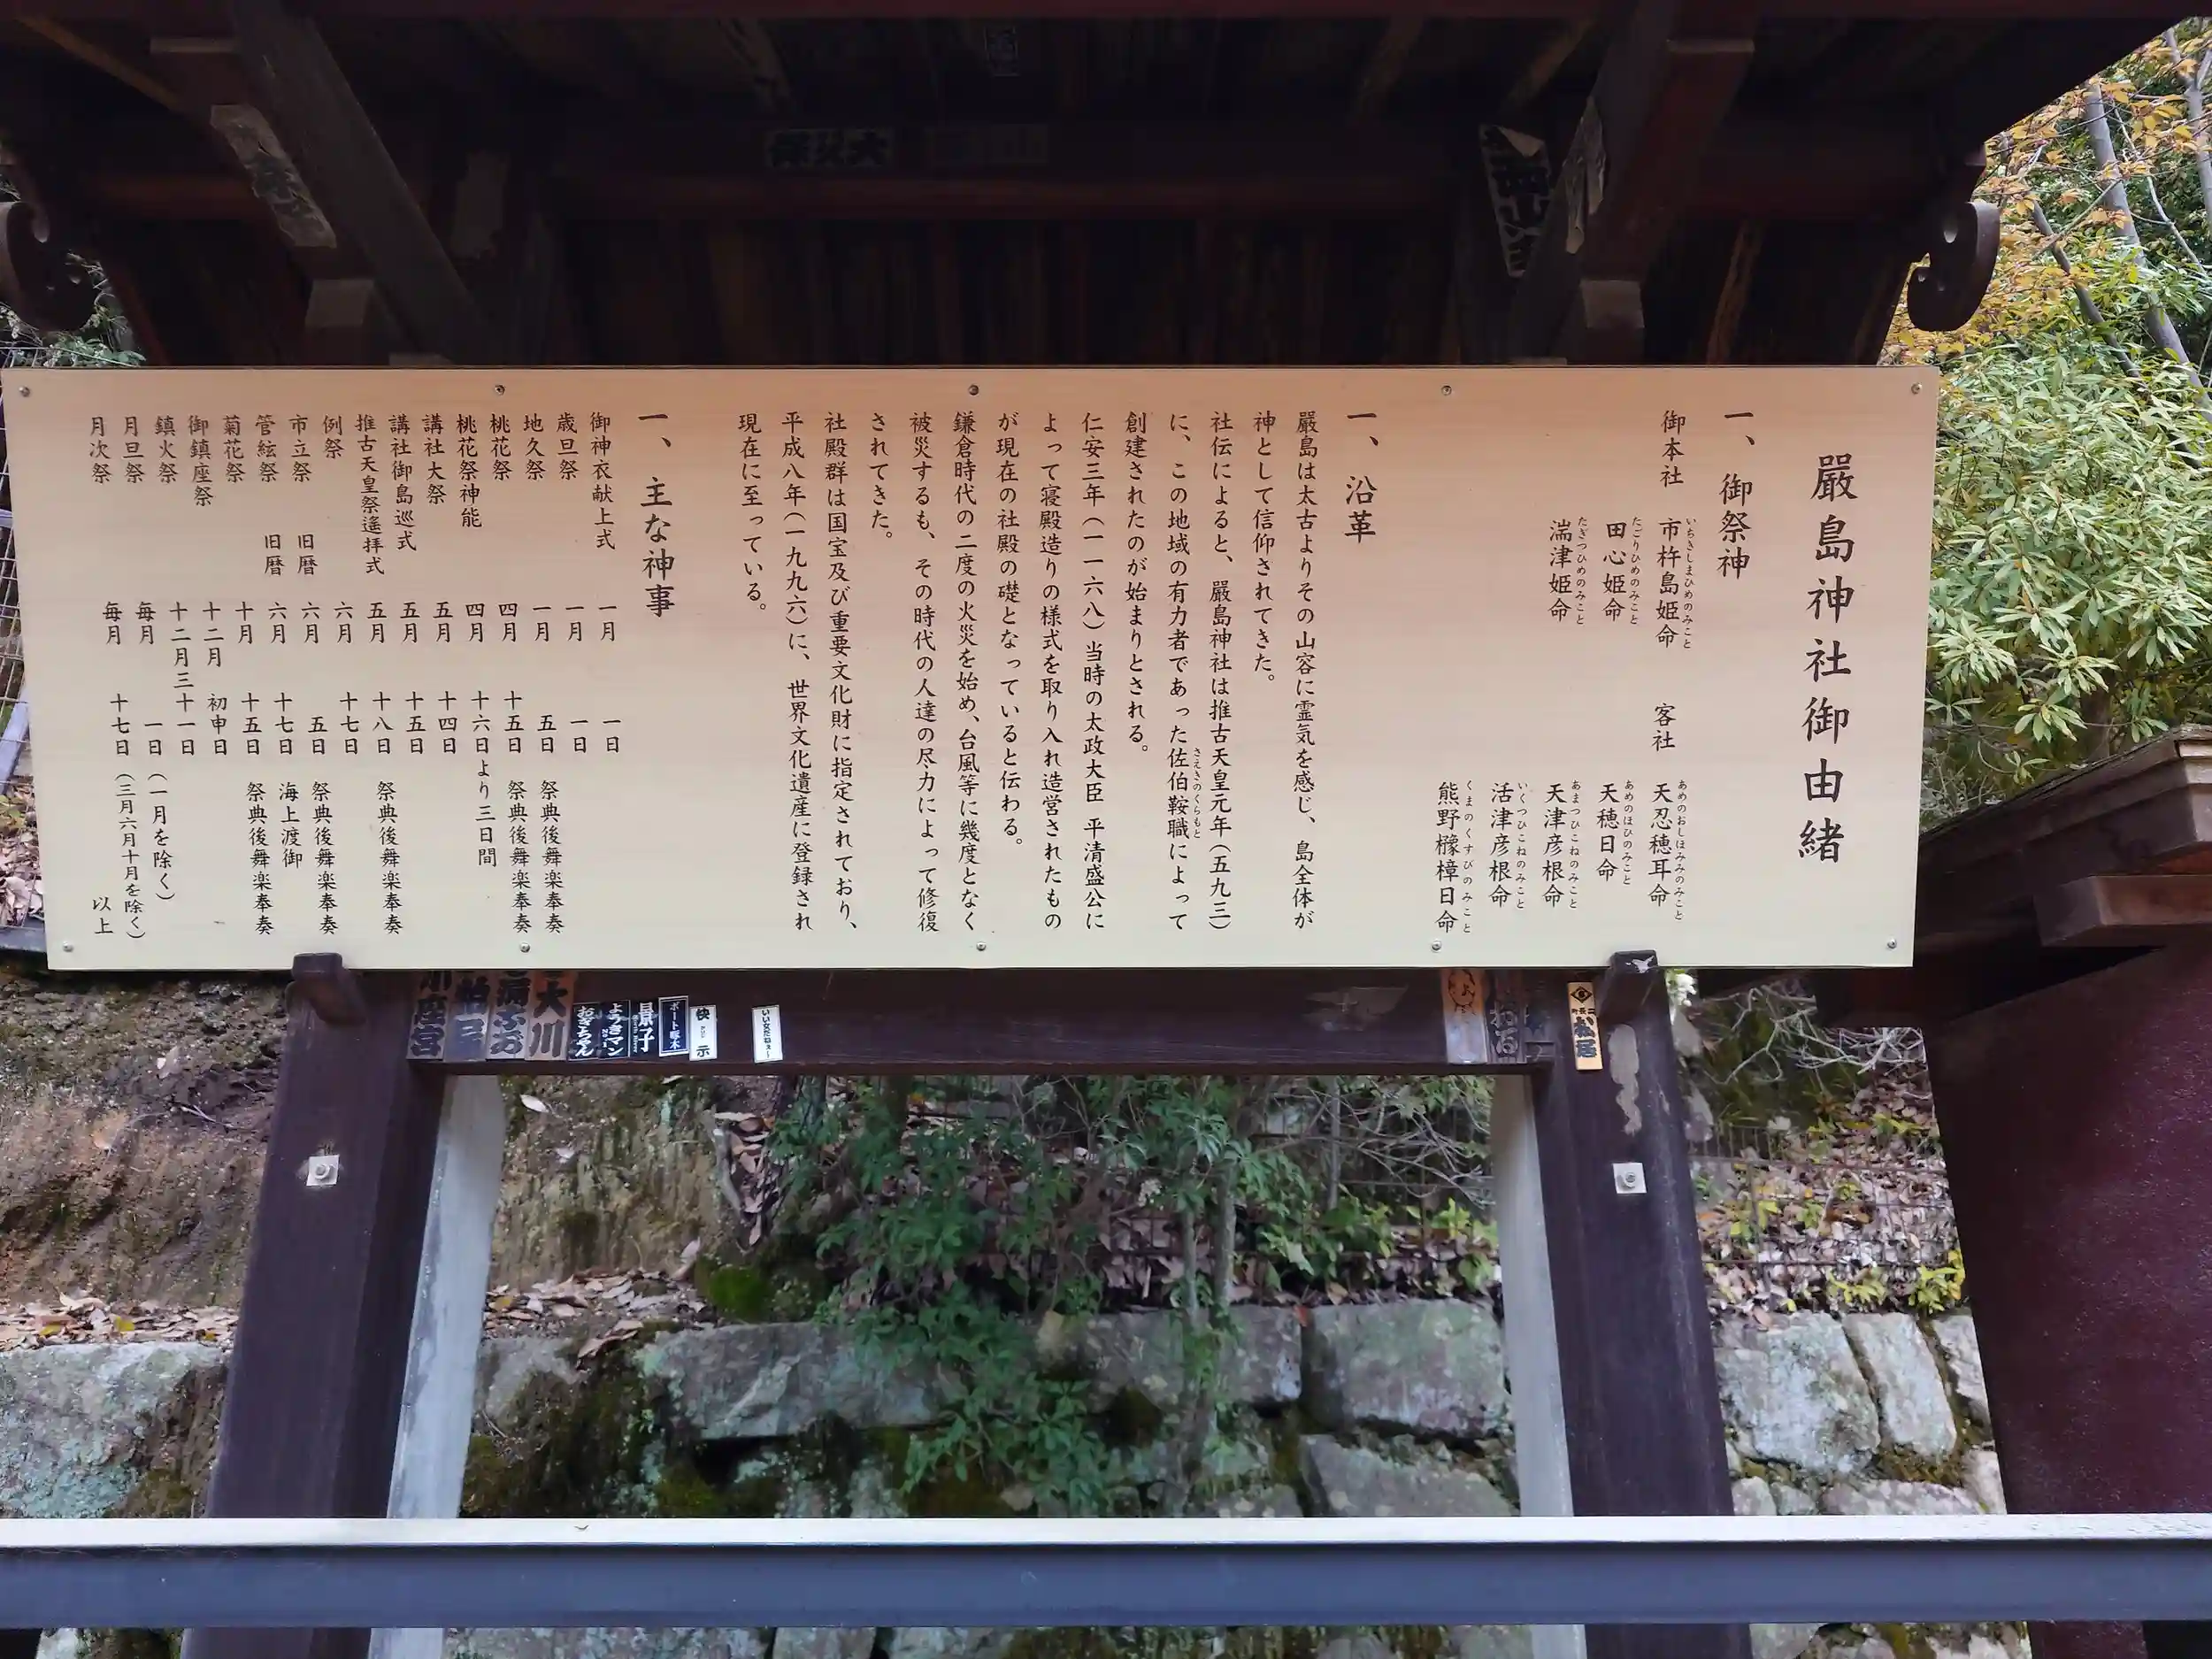 嚴島神社御由緒
一、御祭神
御本社 市杵島姫命 客社 天忍穂耳命
いちきしまひめのみこと あめのおしほみみのみこと
田心姫命 天穂日命
たごりひめのみこと あめのほひのみこと
湍津姫命 天津彦根命
たぎつひめのみこと あまつひこねのみこと
活津彦根命
いくつひこねのみこと
熊野櫲樟日命
くまのくすびのみこと
一、沿革
嚴島は太古よりその山容に霊気を感じ、島全体が
神として信仰されてきた。
社伝によると、嚴島神社は推古天皇元年(五九三)
に、この地域の有力者であった佐伯鞍職によって
さえきのくらもと
創建されたのが始まりとされる。
仁安三年(一一六八)当時の太政大臣 平清盛公に
よって寝殿造りの様式を取り入れ造営されたもの
が現在の社殿の礎となっていると伝わる。
鎌倉時代の二度の火災を始め、台風等に幾度となく
被災するも、その時代の人達の尽力によって修復
されてきた。
社殿群は国宝及び重要文化財に指定されており、
平成八年(一九九六)に、世界文化遺産に登録され
現在に至っている。
一、主な神事
御神衣献上式 一月 一日
歳旦祭 一月 一日
地久祭 一月 五日 祭典後舞楽奉奏
桃花祭 四月 十五日 祭典後舞楽奉奏
桃花祭神能 四月 十六日より三日間
講社大祭 五月 十四日
講社御島巡式 五月 十五日
推古天皇祭遙拝式 五月 十八日 祭典後舞楽奉奏
例祭 六月 十七日
市立祭 旧暦 六月 五日 祭典後舞楽奉奏
管絃祭 旧暦 六月 十七日 海上渡御
菊花祭 十月 十五日 祭典後舞楽奉奏
御鎮座祭 十二月 初申日
鎮火祭 十二月三十一日
月旦祭 毎月 一日(一月を除く)
月次祭 毎月 十七日(三月六月十月を除く)
以上
大川
おぎちゃん
ようきマン
景子
ボート啄木
快示
いい女だねぇ～